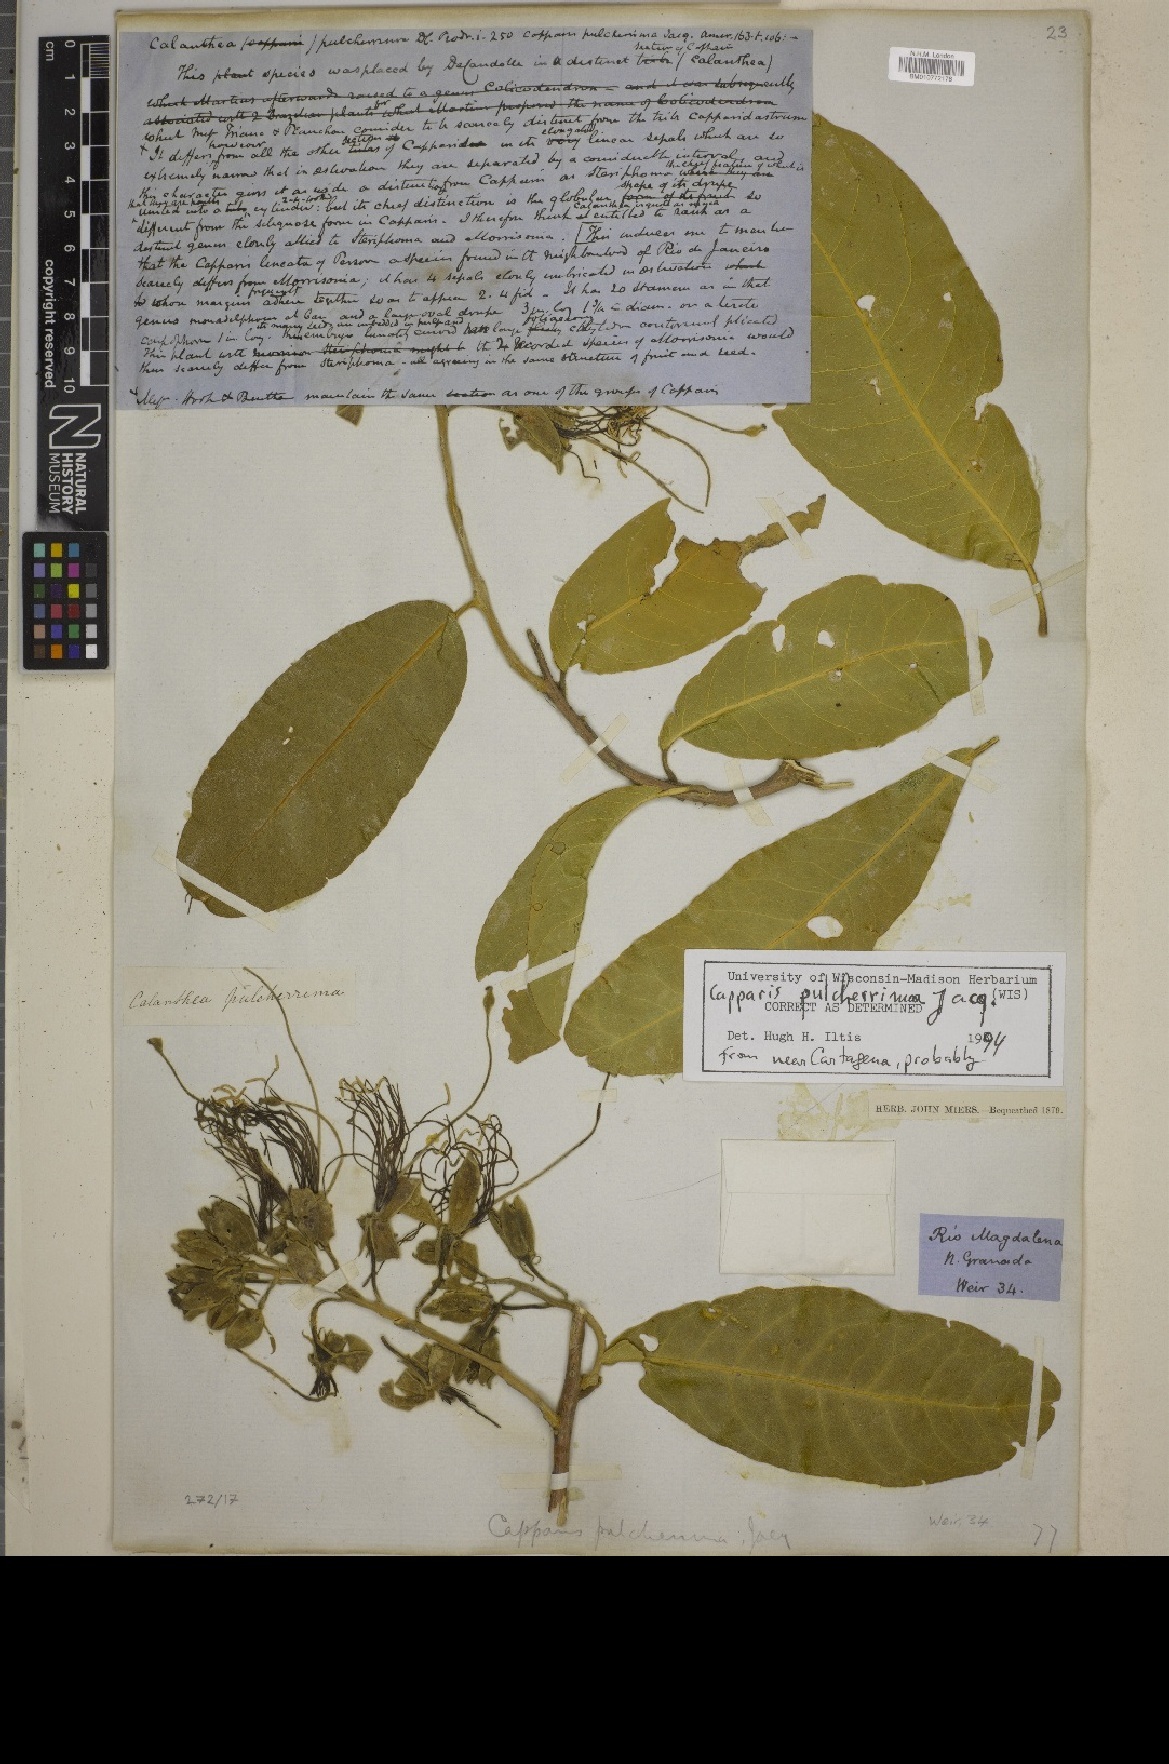 23
N.H.M. London
Calanthea (Capparis) pulcherrima DC. Prodr. i. 250 Capparis pulcherrima Jacq. Amer. 163. t. 106. –
section of Capparis
This plant species was placed by DeCandolle in a distinct (Calanthea)
which Martius afterwards raised to a genus Colicodendron – and it was subsequently
associated with 2 Brazilian plants for which Martius proposed the name of Colicodendron
which Triana & Planchon consider to be scarcely distinct from the tribe Capparidastrum
however section elongated
It differs from all the other of Capparis in its very linear sepals which are so
extremely narrow that in estivation they are separated by a considerable interval, and
this character gives it as wide a distinction from Capparis as Steriphoma
shape of its drupe
united into a cylinder: but its chief distinction is the globular form of its fruit so
different from the siliquose form in Capparis. I therefore think it entitled to rank as a
distinct genus closely allied to Steriphoma and Morrisonia. [This induces me to
that the Capparis lineata of Persoon a species found in the neighbourhood of Rio de Janeiro
scarcely differs from Morrisonia; it has 4 sepals closely imbricated in estivation which
frequently
whose margins adhere together so as to appear 2. 4 fid. It has 20 stamens as in that
genus monadelphous at base and a large oval drupe 3 in. long 1 3/4 in diam. on a terete
large
This plant with the 4 recorded species of Morrisonia would
thus scarcely differ from Steriphoma – all agreeing in the same structure of fruit and seed.
Hook & Benth maintain the same section as one of the groups of Capparis
0 1 2 3 4 5 6 7 8 9 10
NATURAL
HISTORY
MUSEUM
copyright reserved
Calanthea pulcherrima
University of Wisconsin-Madison Herbarium
Capparis pulcherrima Jacq. (WIS)
CORRECT AS DETERMINED
Det. Hugh H. Iltis 1994
from near Cartagena, probably
HERB. JOHN MIERS. Bequeathed 1879.
Rio Magdalena
N. Granada
Weir 34.
272/17
Capparis pulcherrima, Jacq
Weir. 34
77